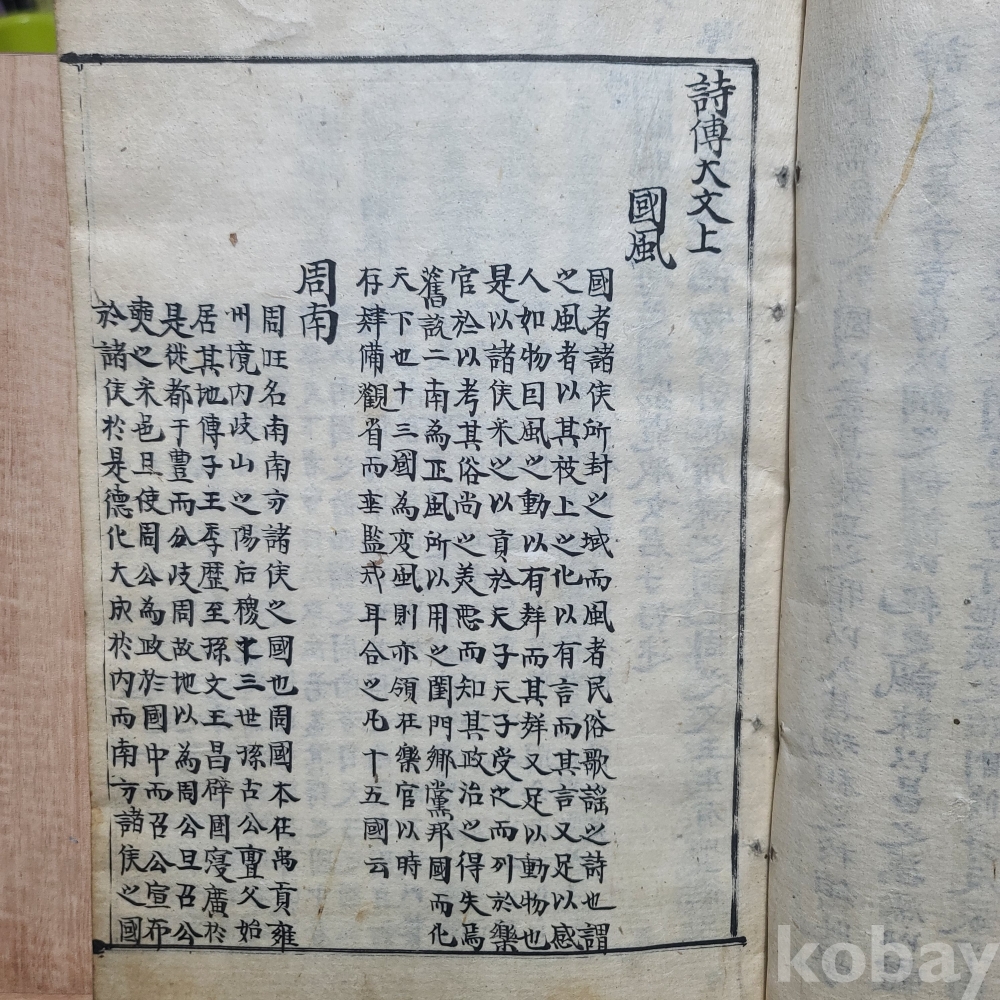 詩傳大文上
國風
國者諸侯所封之域而風者民俗歌謡之詩也謂
之風者以其被上之化以有言而其言又足以感
人如物因風之動以有聲而其聲又足以動物也
是以諸侯采之以貢於天子天子受之而列於樂
官於以考其俗尚之美悪而知其政治之得失焉
舊說二南為正風所以用之閨門鄉黨邦國而化
天下也十三國為変風則亦領在樂官以時
存肄備觀省而垂監戒耳合之凡十五國云
周南
周国名南南方諸侯之國也周國本在禹貢雍
州境内岐山之陽后稷十三世孫古公亶父始
居其地傳子王季歷至孫文王昌辟國寖廣於
是徙都于豊而分岐周故地以為周公旦召公
奭之采邑且使周公為政於國中而召公宣布
於諸侯於是德化大成於内而南方諸侯之國
kobay